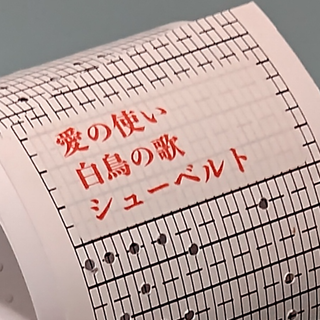 愛の使い
白鳥の歌
シューベルト